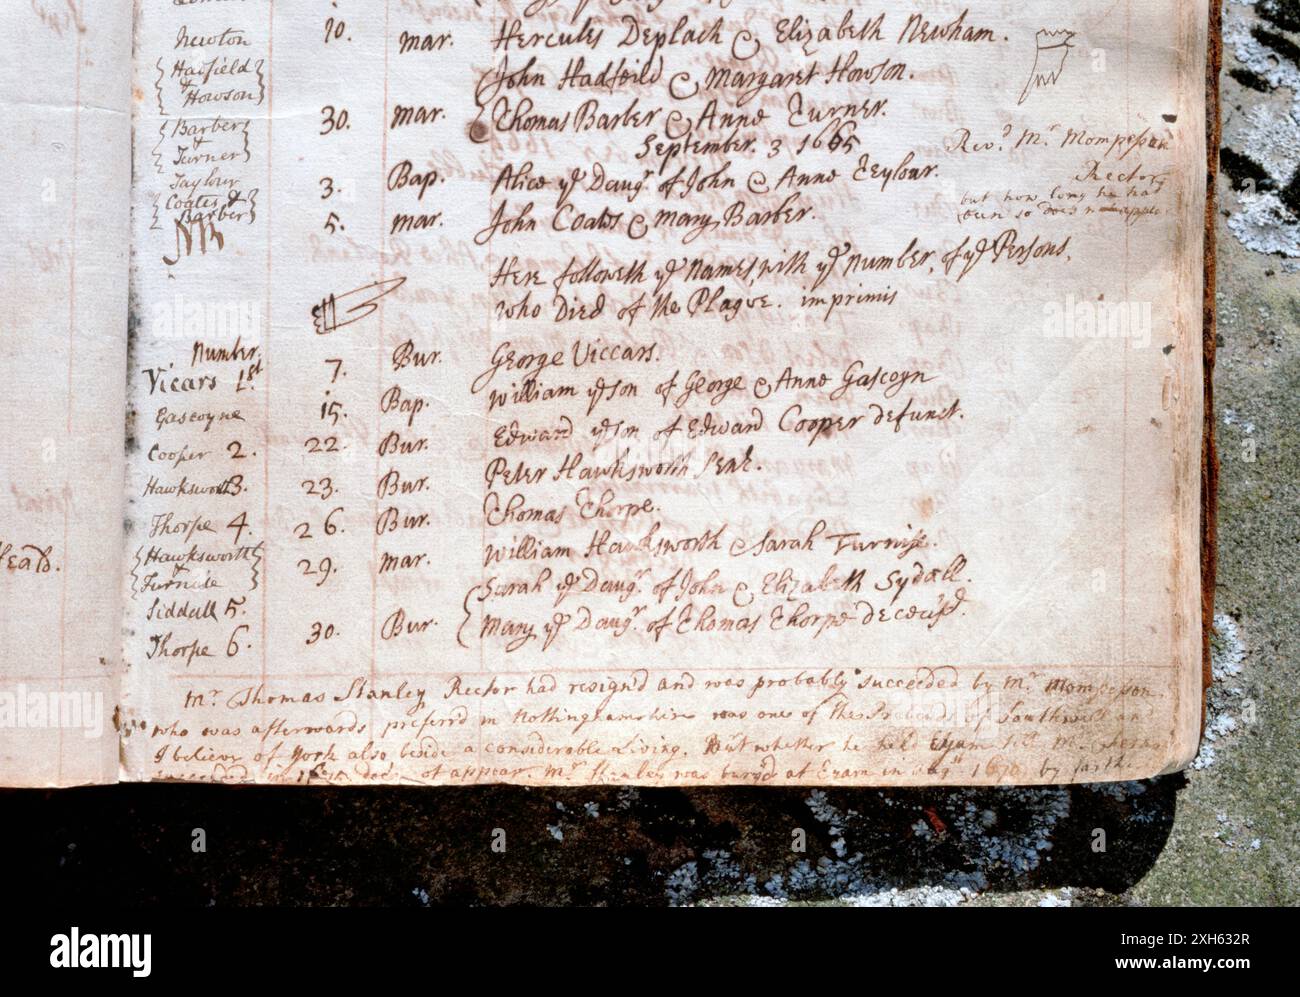 Newton 10. mar. Hercules Deplach & Elizabeth Newham.
{Hadfield & Howson} {John Hadfeild & Margaret Howson.
{Barber & Turner} 30. mar. {Thomas Barber & Anne Turner.
September. 3 1665
Rev.d Mr. Mompesson
Rector
but how long he had
been so does n appe
Taylour 3. Bap. Alice ye Daugr. of John & Anne Teylour.
{Coates & Barber} 5. mar. John Coates & Mary Barber.
NB
Here followeth ye Names, with ye Number, of ye Persons,
who Died of the Plague. imprimis
Number
Vicars 1st 7. Bur. George Viccars.
Gascoyne 15. Bap. William ye son of George & Anne Gascoyn
Cooper 2. 22. Bur. Edward ye son of Edward Cooper defunct.
Hawksworth 3. 23. Bur. Peter Hawksworth
Thorpe 4. 26. Bur. Thomas Thorpe.
{Hawksworth & Turnile} 29. mar. William Hawksworth & Sarah
Siddall 5. {Sarah ye Daugr. of John & Elizabeth Sydall.
Thorpe 6. 30. Bur. {Mary ye Daugr. of Thomas Thorpe
Mr. Thomas Stanley Rector had resign'd and was probably succeeded by Mr. Mompesson.
who was afterwards preferr'd in Nottinghamshire was one of the Prebends of Southwell and
I believe of York also beside a considerable Living. But whether he held Eyam till Mr.
not appear. Mr. Stanley was bury'd at Eyam in Augt 1670 by
alamy
Image ID: 2XH632R
www.alamy.com